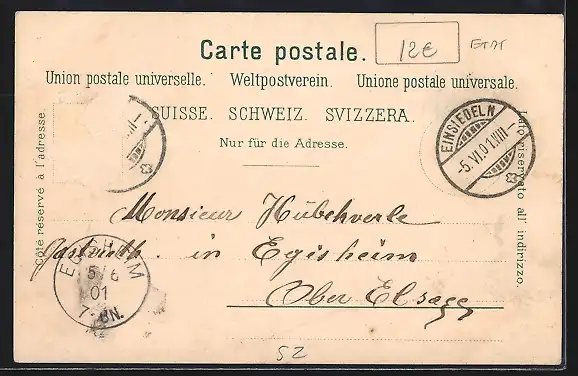 Carte postale.
12€
ETAT
Union postale universelle. Weltpostverein. Unione postale universale.
SUISSE. SCHWEIZ. SVIZZERA.
Nur für die Adresse.
Côté réservé à l'adresse.
Lato riservato all' indirizzo.
EINSIEDELN
-5.VI.01.
Monsieur Hübehverle
in Egisheim
Ober Elsass
EGISHEIM
5/6
01
7-8N.
52